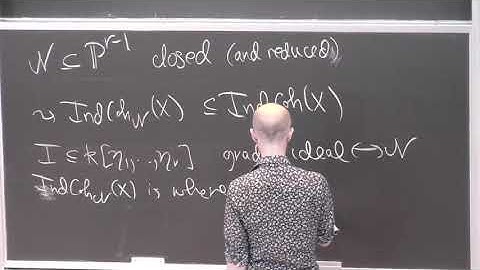 𝒩 ⊆ ℙ^{r-1} closed (and reduced)
⇝ IndCoh_𝒩(X) ⊆ IndCoh(X)
I ⊆ k[η₁,...,ηᵣ] ideal ⟷ 𝒩
IndCoh_𝒩(X) is where